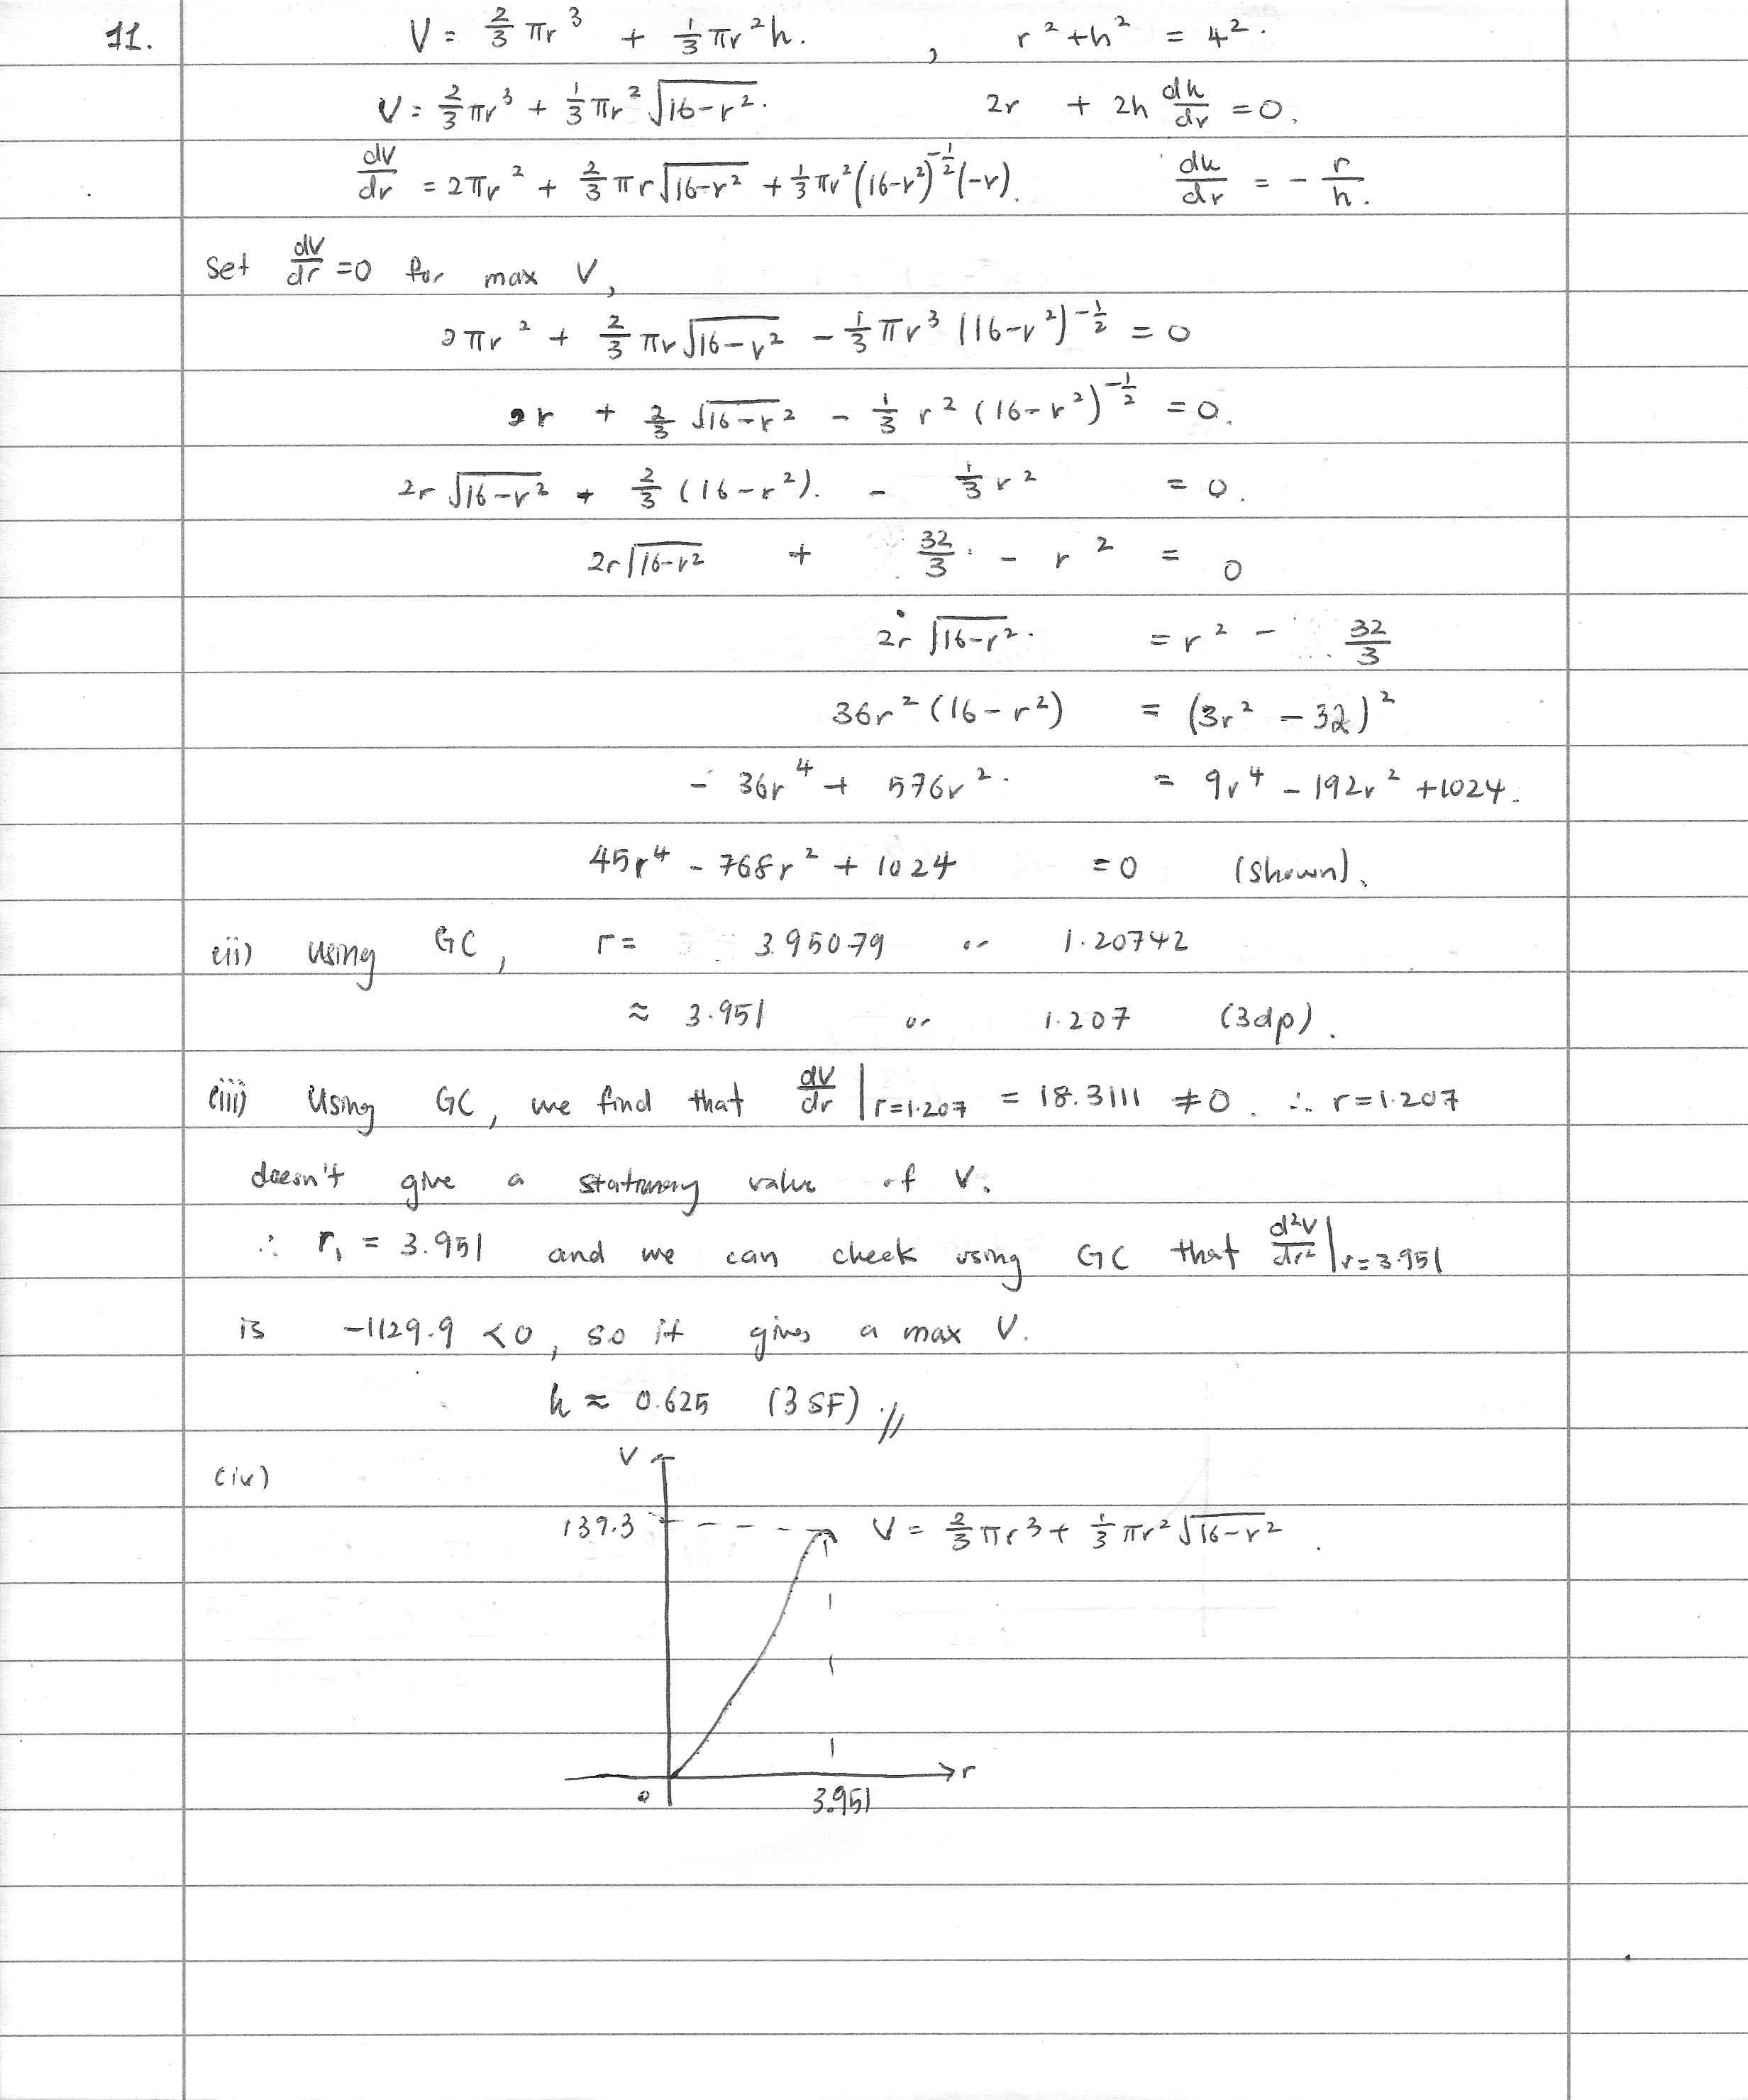 11. V = 2/3 πr³ + 1/3 πr²h. , r² + h² = 4².
V = 2/3 πr³ + 1/3 πr² √(16-r²). 2r + 2h dh/dr = 0.
dV/dr = 2πr² + 2/3 πr √(16-r²) + 1/3 πr² (16-r²)^(-1/2) (-r). dh/dr = - r/h.
Set dV/dr = 0 for max V,
2πr² + 2/3 πr √(16-r²) - 1/3 πr³ (16-r²)^(-1/2) = 0
2r + 2/3 √(16-r²) - 1/3 r² (16-r²)^(-1/2) = 0.
2r √(16-r²) + 2/3 (16-r²). - 1/3 r² = 0.
2r √(16-r²) + 32/3 - r² = 0
2r √(16-r²). = r² - 32/3
36r² (16-r²) = (3r² - 32)²
- 36r⁴ + 576r². = 9r⁴ - 192r² + 1024.
45r⁴ - 768r² + 1024 = 0 (shown).
(ii) Using GC, r = 3.95079 or 1.20742
≈ 3.951 or 1.207 (3dp).
(iii) Using GC, we find that dV/dr |r=1.207 = 18.3111 ≠ 0. ∴ r=1.207
doesn't give a stationary value of V.
∴ r₁ = 3.951 and we can check using GC that d²V/dr² |r=3.951
is -1129.9 < 0, so it gives a max V.
h ≈ 0.625 (3 SF) //
(iv) V
139.3 V = 2/3 πr³ + 1/3 πr² √(16-r²).
r
0 3.951